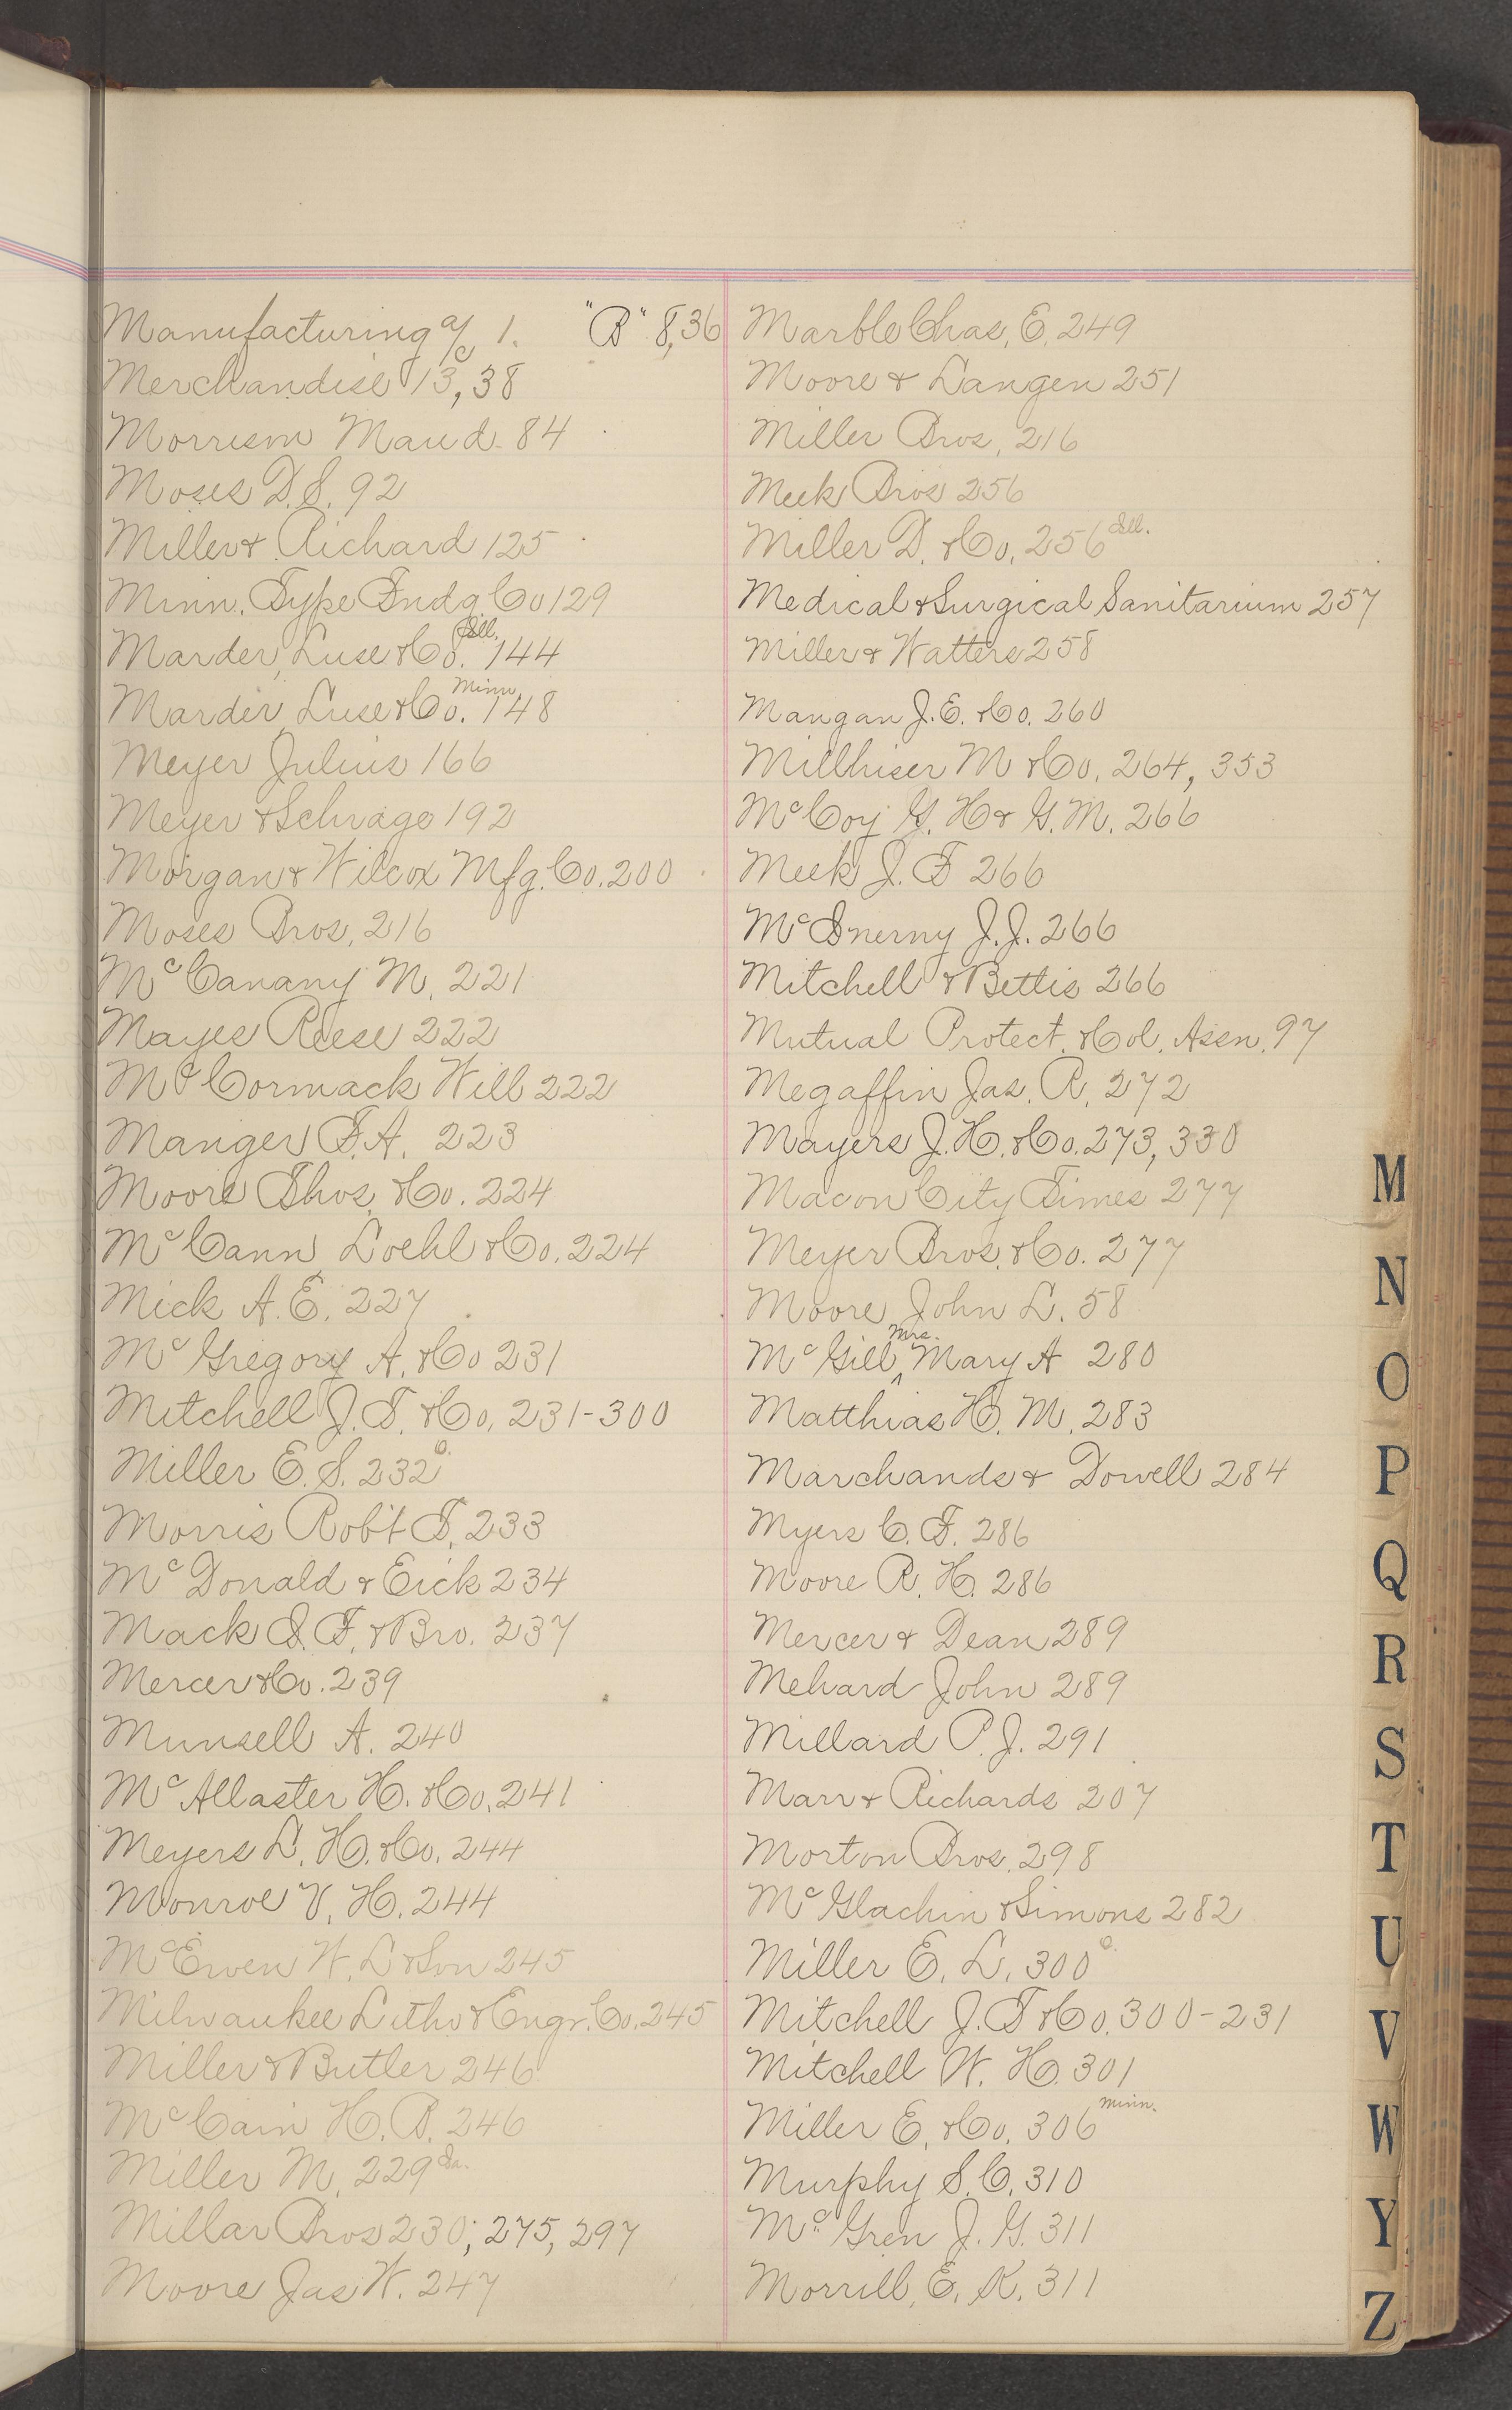 Manufacturing a/c 1. "B" 8,36
Merchandise 13, 38
Morrison Maud 84
Moses D.S. 92
Miller & Richard 125
Minn. Type Fndg Co 129
Marder, Luse & Co. Ill. 144
Marder, Luse & Co. Minn. 148
Meyer Julius 166
Meyer & Schrage 192
Morgan & Wilcox Mfg. Co. 200
Moses Bros, 216
McCanany M. 221
Mayes Reese 222
McCormack Will 222
Manger F.A. 223
Moore Thos. & Co. 224
McCann, Loehl & Co. 224
Mick A.E. 227
McGregory A. & Co 231
Mitchell J.T. & Co. 231-300
Miller E.S. 232 O.
Morris Rob't T. 233
McDonald & Eick 234
Mack I.F. & Bro. 237
Mercer & Co. 239
Munsell A. 240
McAllaster H. & Co. 241
Meyers L. H. & Co. 244
Monroe V. H. 244
McEwen W. L & Son 245
Milwaukee Litho & Engr. Co. 245
Miller & Butler 246
McCain H. B. 246
Miller M. 229 Ia.
Millar Bros 230; 275, 297
Moore Jas W. 247
Marble Chas. E. 249
Moore & Langen 251
Miller Bros, 216
Meek Bros 256
Miller D. & Co. 256 Ill.
Medical & Surgical Sanitarium 257
Miller & Watters 258
Mangan J.E. & Co. 260
Millhiser M & Co. 264, 353
McCoy G. H & G. M. 266
Meek J. F 266
McInerny J.J. 266
Mitchell & Bettis 266
Mutual Protect. & Col. Assn. 97
Megaffin Jas. R. 272
Mayers J. H. & Co. 273, 330
Macon City Times 277
Meyer Bros. & Co. 277
Moore John L. 58
McGill, Mrs. Mary A 280
Matthias H. M. 283
Marchands & Dowell 284
Myers C. F. 286
Moore R. H. 286
Mercer & Dean 289
Mehard John 289
Millard P. J. 291
Marr & Richards 207
Morton Bros. 298
McGlachin & Simons 282
Miller E. L. 300 O.
Mitchell J. T & Co. 300-231
Mitchell W. H. 301
Miller E. & Co. 306 Minn.
Murphy S. C. 310
McGren J. G. 311
Morrill, E. K. 311
M
N
O
P
Q
R
S
T
U
V
W
Y
Z